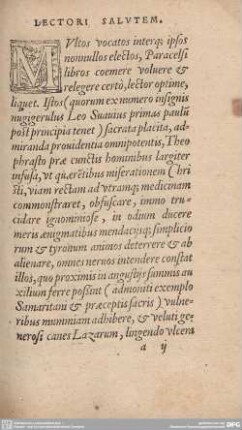 LECTORI SALVTEM.
MVltos vocatos interq; ipsos
nonnullos electos, Paracelsi
libros coemere voluere &
relegere certò, lector optime,
liquet. Istos (quorum ex numero insignis
nugigerulus Leo Suauius primas paulū
post principia tenet) sacrata placita, ad-
miranda prouidentia omnipotentis, Theo
phrasto præ cunctis hominibus largiter
infusa, vt quærētibus miserationem Chri
sti, viam rectam ad vtramq; medicinam
commonstraret, obfuscare, immo tru-
cidare ignominiose, in odium ducere
meris ænigmatibus mendacijsq; simplicio
rum & tyronum animos deterrere & ab
alienare, omnes neruos intendere constat
illos, quo proximis in angustijs summis au
xilium ferre possint (admoniti exemplo
Samaritani & præceptis sacris) vulne-
ribus mummiam adhibere, & veluti ge-
nerosi canes Lazarum, lingendo vlcera
a ij